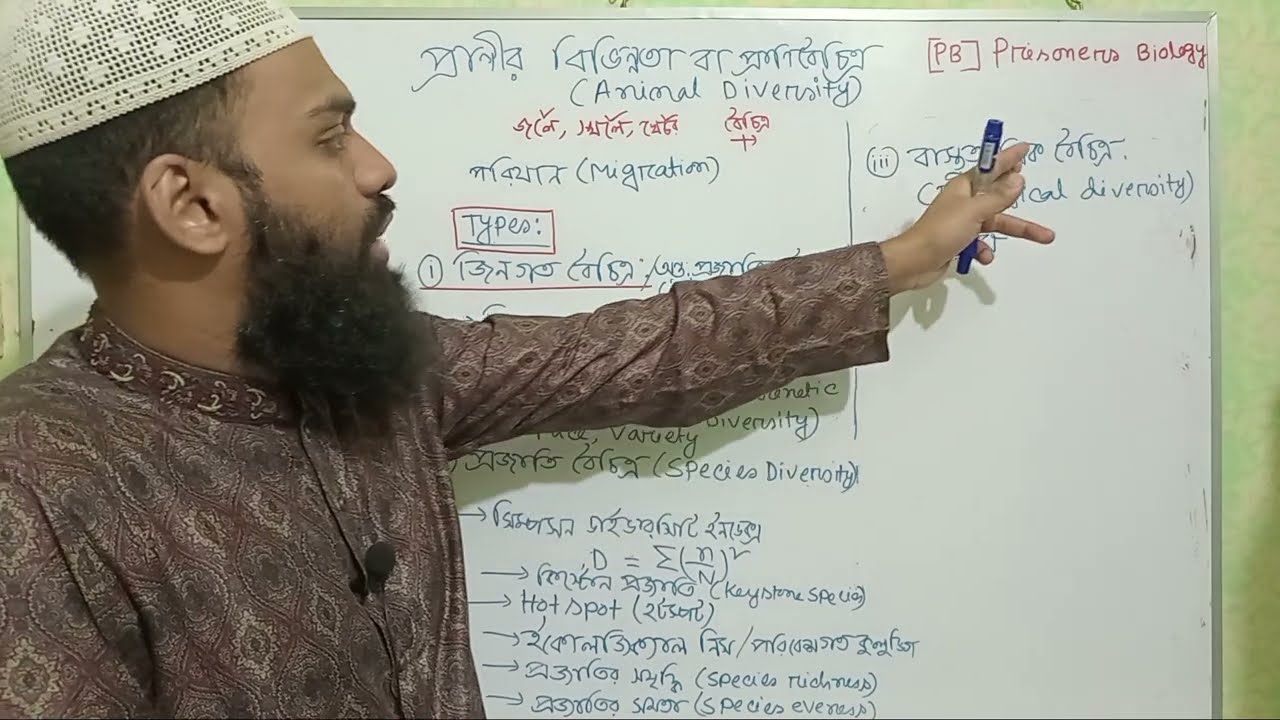 প্রাণীর বিভিন্নতা বা প্রাণিবৈচিত্র্য
(Animal Diversity)
[PB] Prisoners Biology
জলে, স্থলে, খেচর বৈচিত্র্য
পরিযান (Migration)
Types:
i জিনগত বৈচিত্র্য:
netic
Race, Variety Diversity)
প্রজাতি বৈচিত্র্য (Species Diversity)
→ সিম্পসন ডাইভারসিটি ইনডেক্স
D = Σ(n/N)²
→ কিস্টোন প্রজাতি (Keystone species)
→ Hot spot (হটস্পট)
→ ইকোলজিক্যাল নিস/পরিবেশগত কুলুঙ্গি
→ প্রজাতির সমৃদ্ধি (species richness)
→ প্রজাতির সমতা (species eveness)
iii বৈচিত্র্য.
ical diversity)